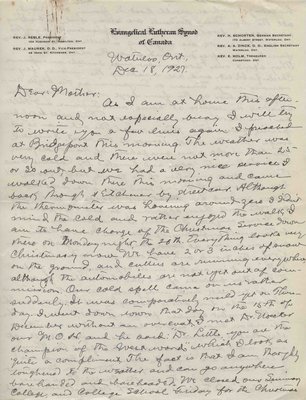 Evangelical Lutheran Synod
of Canada
REV. J. REBLE, PRESIDENT
REV. J. MAURER, D. D., VICE-PRESIDENT
REV. H. SCHORTEN, GERMAN SECRETARY
REV. A. S. ZINCK, D. D., ENGLISH SECRETARY
REV. E. HOLM, TREASURER
Waterloo Ont.,
Dec. 18, 1927
Dear Mother:
As I am at home this after-
noon and not especially busy I will try
to write you a few lines again. I preached
at Bridgeport this morning. The weather was
very cold and there were not more than
or so out, but we had a very nice service. I
walked down there this morning and came
back through Kitchener by street car. Although
the thermometer was hovering around zero I didn't
mind the cold and rather enjoyed the walk. I
am to have charge of the Christmas Service down
there on Monday night the 26th. Everything looks very
Christmassy now. We have 2 or 3 inches of snow
on the ground and cutters are running everywhere
although the automobiles are not yet out of com-
mission. Our cold spell came on us rather
suddenly. It was comparatively mild yet on Thurs-
day. I went down town that day on the 15th of
December without an overcoat. I met Dr. Hoster
our M.O.H. and he said: Dr. Little you are the
champion of the west ward, which I took as
quite a compliment. The fact is that I am thoroly
toughened to the weather and can go anywhere
bare handed and bareheaded. We closed our Seminary
College and College School Friday for the Christmas